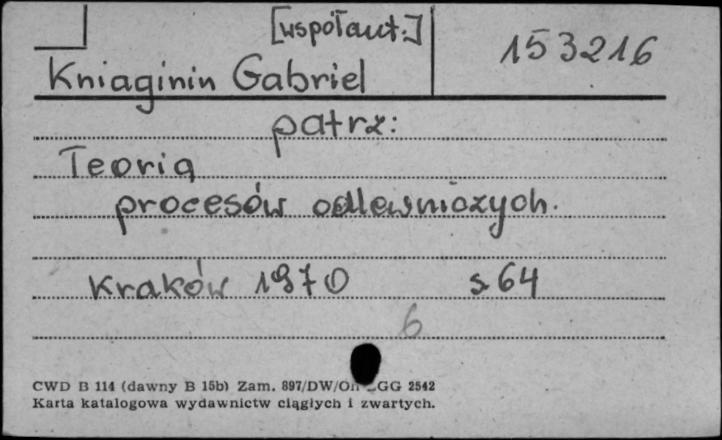 [współaut.]
153216
Kniaginin Gabriel
patrz:
Teoria
procesów odlewniczych.
Kraków 1970 s. 64
6
CWD B 114 (dawny B 15b) Zam. 897/DW/On GG 2542
Karta katalogowa wydawnictw ciągłych i zwartych.